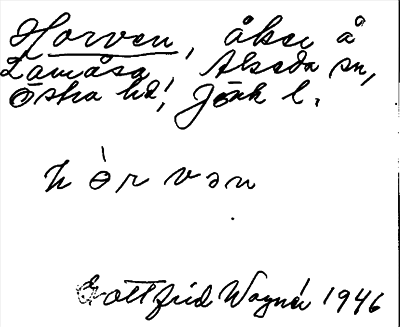 Horven, åker å
Lamåsa, Alseda sn,
Östra hd, Jönk l.
hòrvən
Gottfrid Wagnér 1946